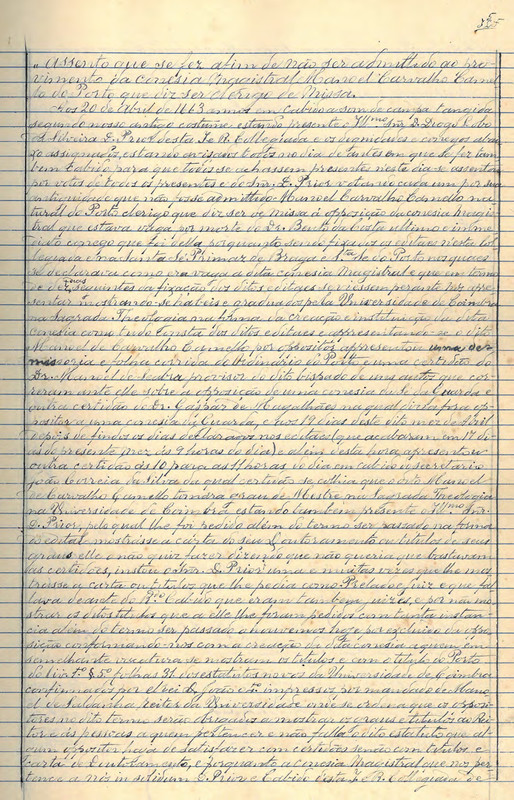 Assento que se fez afim de não ser admittido ao pro-
vimento da conesia Magistral Manoel Carvalho Camel-
lo do Porto que diz ser clerigo de Missa.
Aos 20 de Abril de 1663 annos em Cabido a som de campa tangida
segundo nosso antigo costume estando presente o Illmo Snr. D. Diogo Lobo
da Silveira D. Prior desta I. R. Collegiada e os demais conegos abai-
xo assignados, estando avisados todos no dia de antes em que se fez tam-
bem Cabido para que todos se achassem presentes neste dia se assentou
por votos de todos os presentes e do Snr. D. Prior votando cada um por sua
antiguidade que não fosse admittido Manoel Carvalho Camello na-
tural do Porto clerigo que diz ser de missa á opposição da conesia magis-
tral que estava vaga por morte do Dr. Bento da Costa ultimo e imme-
diato conego que foi della porquanto sendo fixados os editaes nesta Col-
legiada e na Santa Sé Primaz de Braga e Sta Sé do Porto nos quaes
se declarava como era vaga a dita conesia Magistral e que em termo
de dias seguintes da fixação dos ditos editaes se viessem perante nós apre-
sentar mostrando-se habeis e graduados pela Universidade de Coimbra
na Sagrada Theologia na forma da creação e instituição da dita
conesia como tudo consta dos ditos editaes e apresentando-se o dito
Manoel de Carvalho Camello por oppositor apresentou uma de-
missoria e folha corrida do Ordinario do Porto e uma certidão do
Dr. Manoel de Seabra provisor do dito bispado de uns autos que cor-
reram ante elle sobre a opposição de uma conesia da Sé da Guarda e
outra certidão do Dr. Gaspar de Magalhães na qual dizia fora op-
positor a uma conesia da Guarda, e aos 19 dias deste dito mez de Abril
depois de findos os dias declarados nos editaes (que acabaram em 17 di-
as do presente mez ás 9 horas do dia) e alem desta hora apresentou
outra certidão ás 10 para as 11 horas do dia em cabido do secretario
João Correia da Silva da qual certidão se colhia que o dito Manoel
de Carvalho Camello tomara o grau de Mestre na Sagrada Theologia
na Universidade de Coimbra estando tambem presente o Illmo Snr.
D. Prior, pelo qual lhe foi pedido alem do termo ser passado na forma
do edital mostrasse a carta do seu doutoramento ou titulos de seus
graus elle o não quiz fazer dizendo que não queria que bastavam
as certidões, instou o Snr. D. Prior uma e muitas vezes que lhe mos-
trasse a carta ou titulos que lhe pedia como Prelado e juiz e que fal-
lava deante do Rdo Cabido que eram tambem juizes, e por não mos-
trar os ditos titulos que a elle lhe foram pedidos com tanta instan-
cia alem do termo ser passado o houvemos por excluido da oppo-
sição conformando-nos com a creação da dita conesia e que em
semelhante vacatura se mostram os titulos e com o titulo
do liv. 1.º § 5.º folhas 21 dos estatutos novos da Universidade de Coimbra
confirmados por el-rei D. João 4.º impressos por mandado de Mano-
el de Saldanha, reitor da Universidade onde se ordena que os opposi-
tores no dito termo serão obrigados a mostrar os graus e titulos ao Rei-
tor e ás pessoas a quem pertencer e não falla o dito estatuto que al-
gum oppositor haja de satisfazer com certidões senão com titulos e
carta de Doutoramento, e porquanto a conesia Magistral que nos per-
tence a nós in solidum D. Prior e Cabido desta I. R. Collegiada de